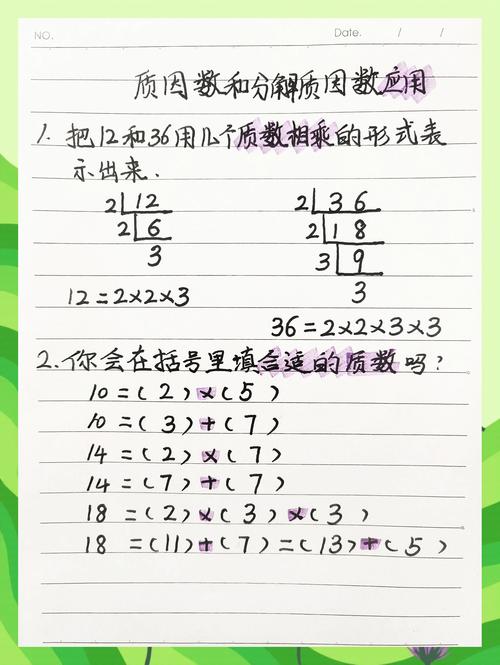 NO.
Date. / /
质因数和分解质因数应用
1. 把12和36用几个质数相乘的形式表
示出来.
2 12 2 36
2 6 2 18
3 3 9
3
12=2×2×3
36=2×2×3×3
2.你会在括号里填合适的质数吗?
10=(2)×(5)
10=(3)+(7)
14=(2)×(7)
14=(7)+(7)
18=(2)×(3)×(3)
18=(11)+(7)=(13)+(5)